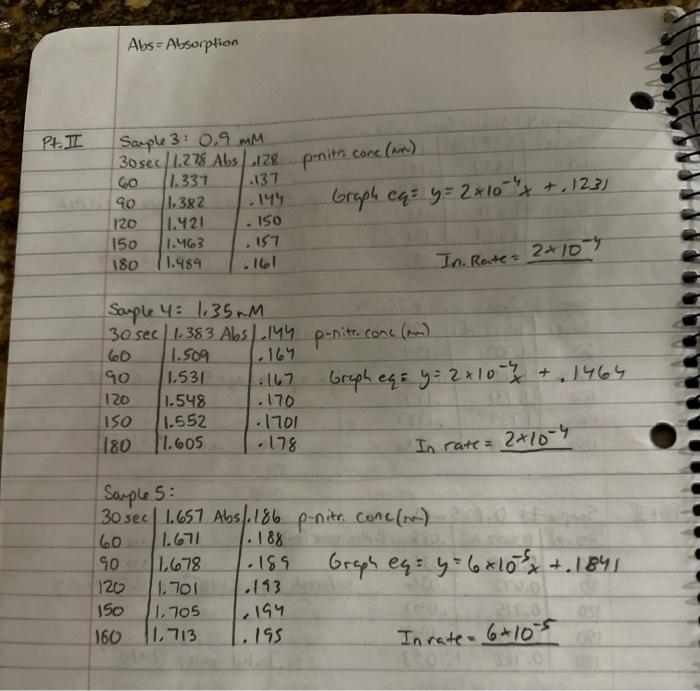 Abs = Absorption
Pt. II Sample 3: 0.9 mM
30 sec 1.278 Abs .128 p-nitr. conc (mM)
60 1.337 .137
90 1.382 .144 Graph eq = y = 2x10⁻⁴x + .1231
120 1.421 .150
150 1.463 .157
180 1.489 .161 In. Rate = 2x10⁻⁴
Sample 4: 1.35 mM
30 sec 1.383 Abs .144 p-nitr. conc (mM)
60 1.509 .164
90 1.531 .167 Graph eq = y = 2x10⁻⁴x + .1464
120 1.548 .170
150 1.552 .1701
180 1.605 .178 In rate = 2x10⁻⁴
Sample 5:
30 sec 1.657 Abs .186 p-nitr. conc (mM)
60 1.671 .188
90 1.678 .189 Graph eq = y = 6x10⁻⁵x + .1841
120 1.701 .193
150 1.705 .194
180 1.713 .195 In rate = 6x10⁻⁵